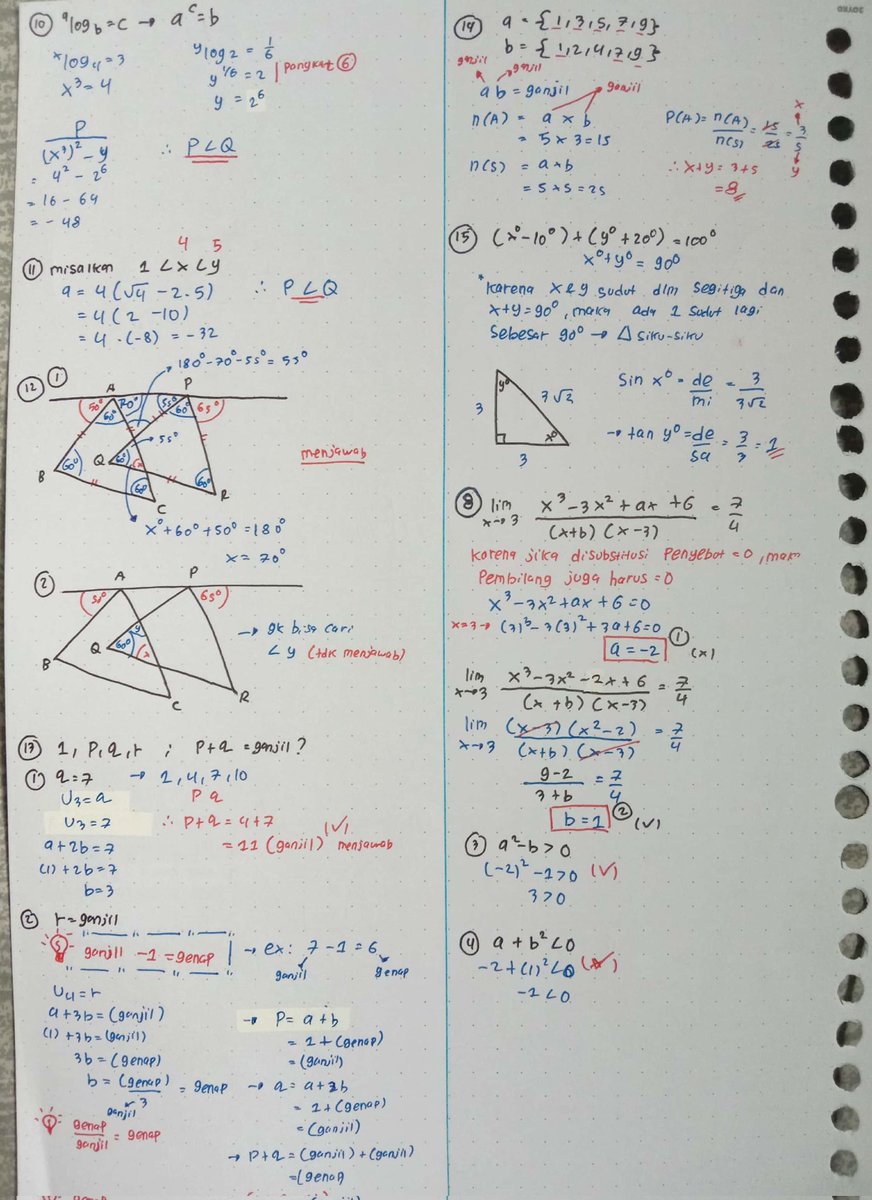 10 ᵃlog b = c → aᶜ = b
ˣlog 4 = 3
x³ = 4
ʸlog 2 = 1/6
y^(1/6) = 2 | pangkat 6
y = 2⁶
P
(x³)² - y
= 4² - 2⁶
= 16 - 64
= - 48
∴ P < Q
11 misalkan 1 < x < y
4 5
a = 4(√4 - 2.5)
= 4(2 - 10)
= 4 . (-8) = -32
∴ P < Q
12 1
180° - 70° - 55° = 55°
A P
50° 60° 70° 55° 60° 65°
55°
B 60° Q 60° x 60° R
60° C
menjawab
x° + 60° + 50° = 180°
x = 70°
2
A P
50° 65°
y
B Q 60° x
C R
→ gk bisa cari
∠y (tdk menjawab)
13 1, P, q, r ; P + q = ganjil?
1 q = 7 → 1, 4, 7, 10
P q
U₃ = q
U₃ = 7
a + 2b = 7
(1) + 2b = 7
b = 3
∴ P + q = 4 + 7 (✓)
= 11 (ganjil) menjawab
2 r = ganjil
ganjil - 1 = genap → ex: 7 - 1 = 6
ganjil genap
U₄ = r
a + 3b = (ganjil)
(1) + 3b = (ganjil)
3b = (genap)
b = (genap)/3 = genap
ganjil
genap/ganjil = genap
→ P = a + b
= 1 + (genap)
= (ganjil)
→ q = a + 2b
= 1 + (genap)
= (ganjil)
→ P + q = (ganjil) + (ganjil)
= (genap
14 a = {1, 3, 5, 7, 9}
b = {1, 2, 4, 7, 9}
ganjil ganjil
ab = ganjil ganjil
n(A) = a × b
= 5 × 3 = 15
n(S) = a × b
= 5 × 5 = 25
P(A) = n(A)/n(S) = 15/25 = 3/5
x
y
∴ x + y = 3 + 5
= 8
15 (x° - 10°) + (y° + 20°) = 100°
x° + y° = 90°
* karena x & y sudut dlm segitiga dan
x + y = 90°, maka ada 1 sudut lagi
sebesar 90° → △ siku-siku
y° 3 3√2
x°
3
sin x° = de/mi = 3/3√2
→ tan y° = de/sa = 3/3 = 1
8 lim x→3 x³ - 3x² + ax + 6 / (x+b) (x-3) = 7/4
karena jika disubstitusi Penyebot = 0, mak
Pembilang juga harus = 0
x³ - 3x² + ax + 6 = 0
x=3 → (3)³ - 3(3)² + 3a + 6 = 0
a = -2 1 (x)
lim x→3 x³ - 3x² - 2x + 6 / (x + b) (x - 3) = 7/4
lim x→3 (x - 3) (x² - 2) / (x+b) (x-3) = 7/4
9 - 2 / 3 + b = 7/4
b = 1 2 (✓)
3 a² - b > 0
(-2)² - 1 > 0 (✓)
3 > 0
4 a + b² < 0
-2 + (1)² < 0
-1 < 0